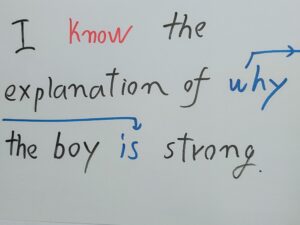 I know the
explanation of why
the boy is strong.